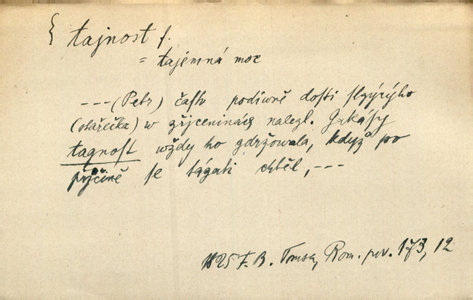 tajnost f.
= tajemná moc
--- (Petr) často podiwně dosti
(stářečka) w zřjceninách nalezl. Gakásy
tagnost wždy ho zdržowala, když po
přjčině se tázati chtěl, ---
1825 F. B. Tomsa, Rom. pov. 173, 12